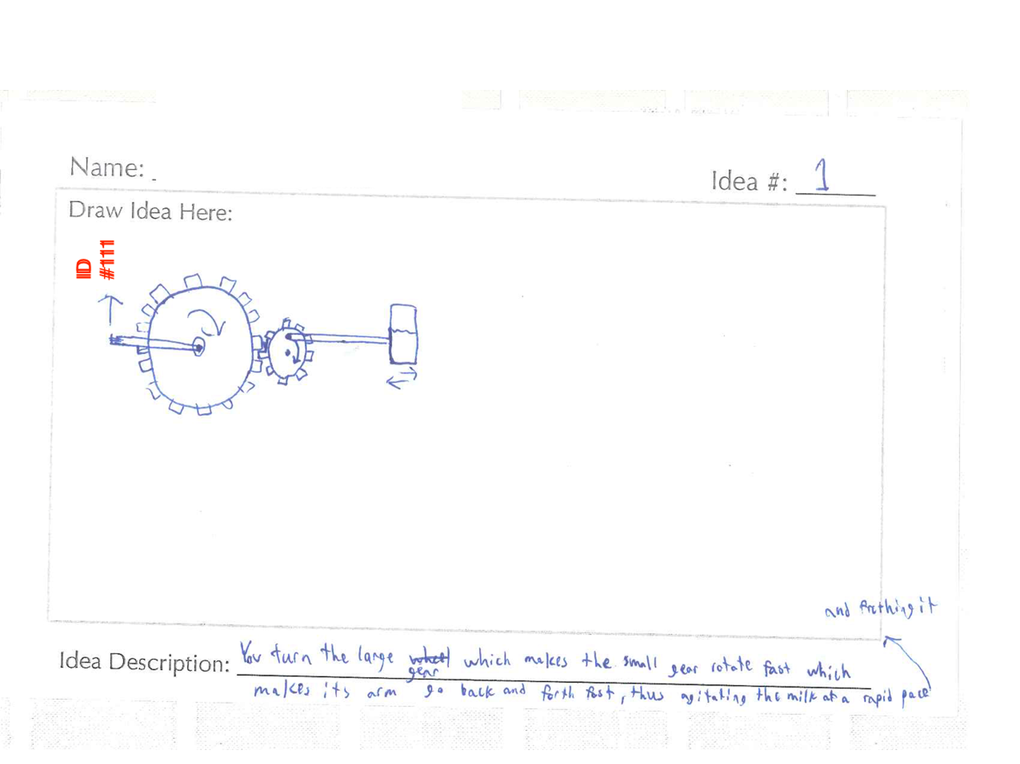 Name:
Idea #: 1
Draw Idea Here:
ID
#111
and frothing it
Idea Description: You turn the large wheel which makes the small gear rotate fast which
gear
makes its arm go back and forth fast, thus agitating the milk at a rapid pace